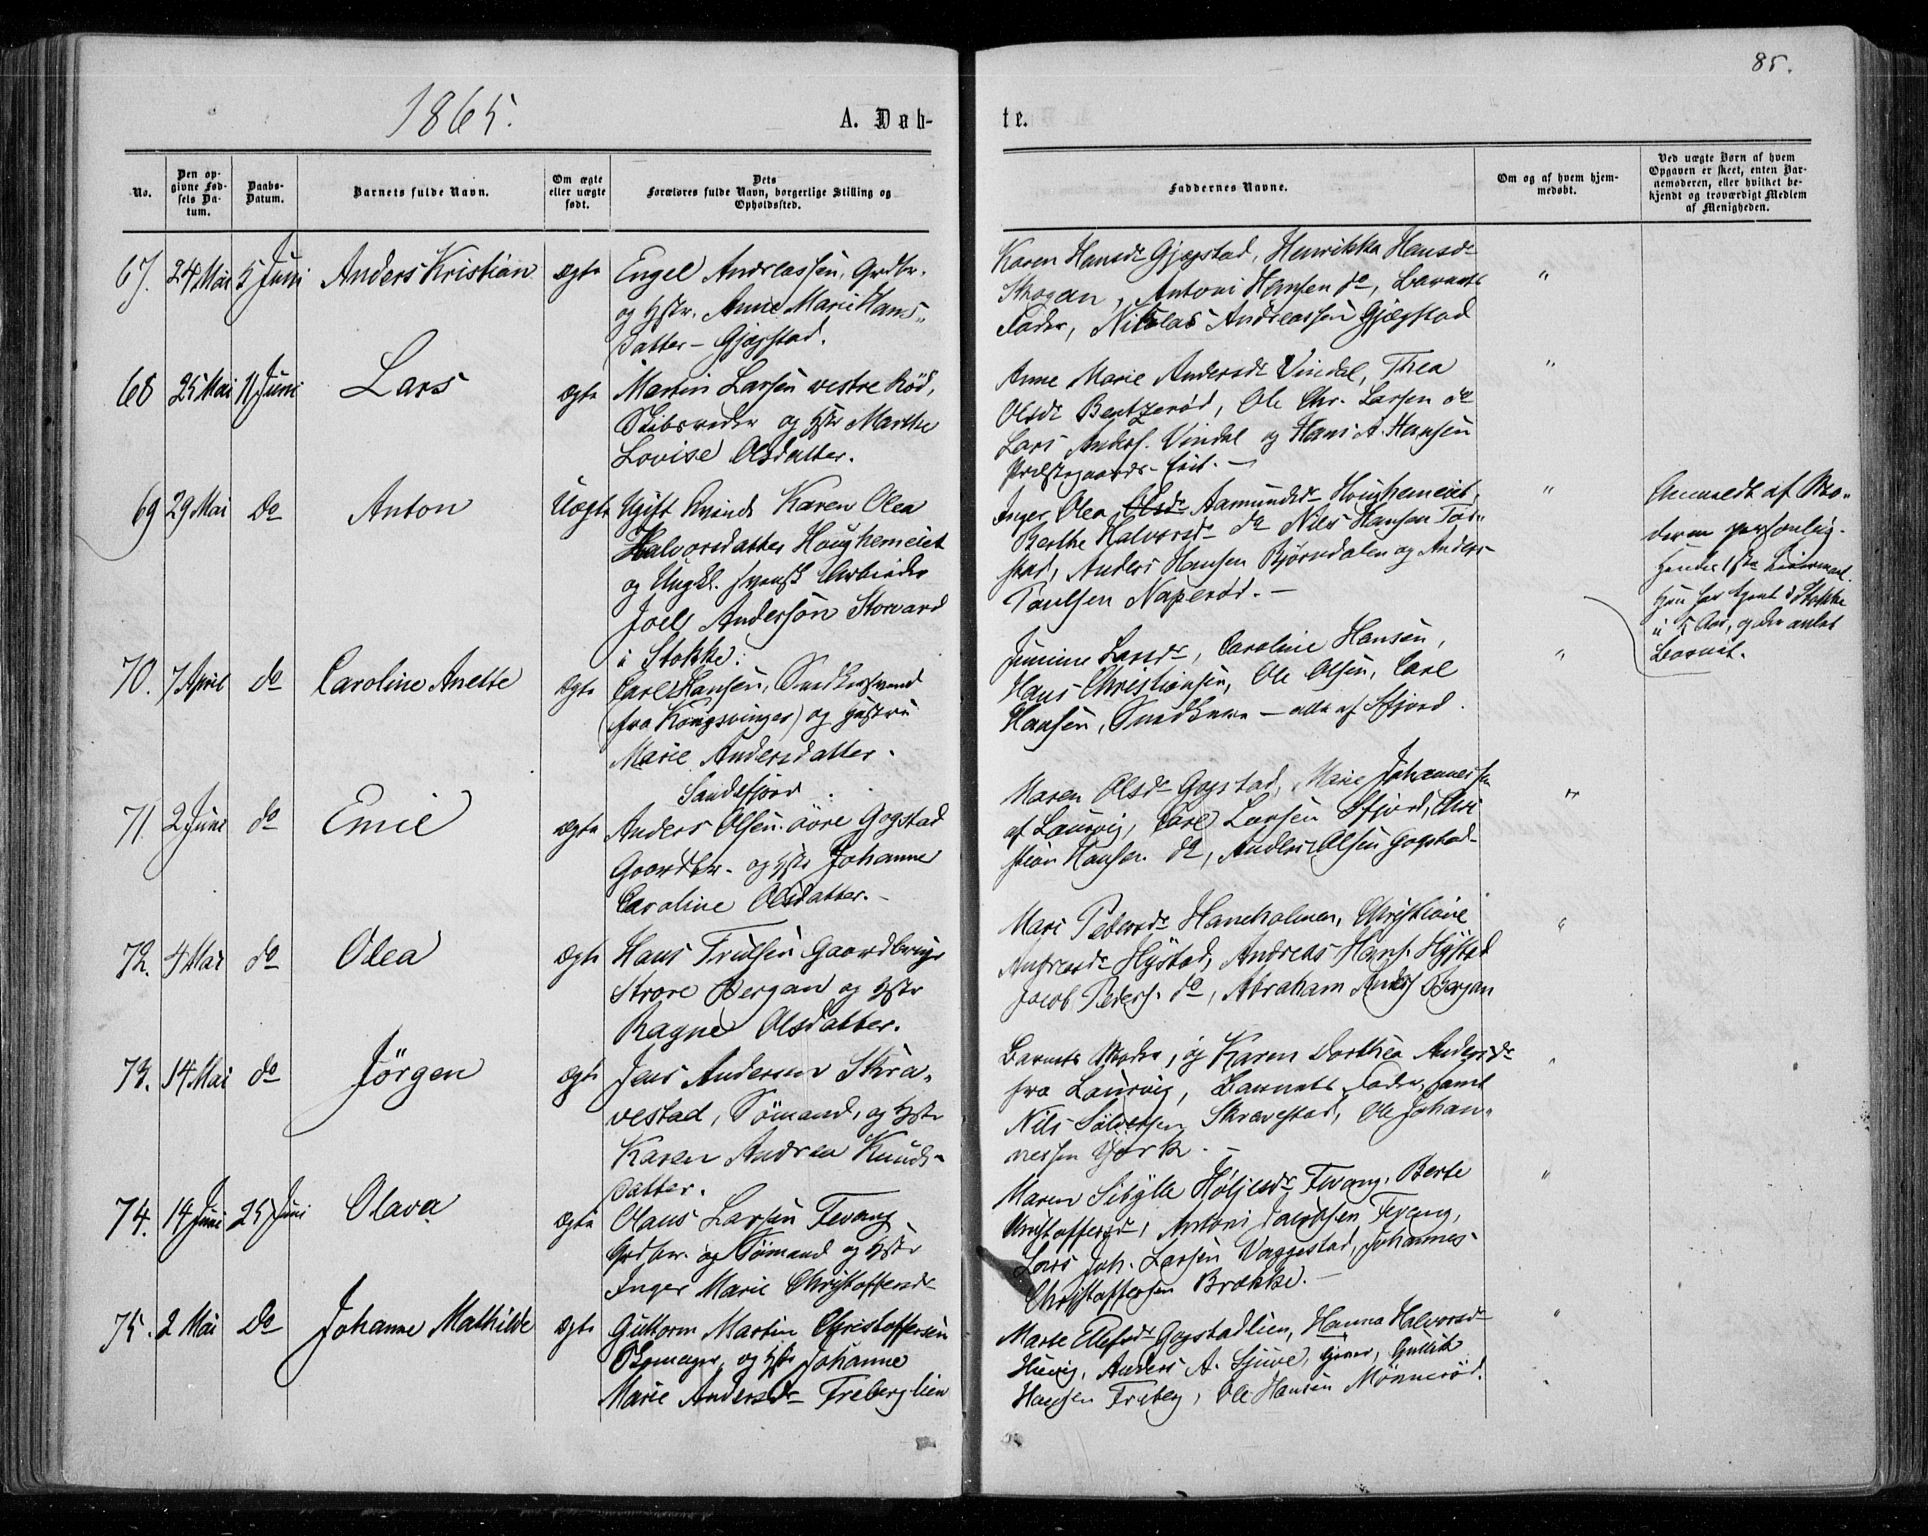 85.
1865.
A. Døb-
te.
No.
Den op-
givne Fød-
sels Da-
tum.
Daabs-
Datum.
Barnets fulde Navn.
Om ægte
eller uægte
født.
Dets
Forældres fulde Navn, borgerlige Stilling og
Opholdssted.
Faddernes Navne.
Om og af hvem hjem-
medøbt.
Ved uægte Børn af hvem
Opgaven er skeet, enten Bar-
nemoderen, eller hvilket be-
kjendt og troværdigt Medlem
af Menigheden.
67. 24 Mai 5 Juni Anders Kristian ægte Engel Andreassen, Grdbr.
og Hstr. Anne Marie Hans-
datter - Gjøgstad.
Karen Hansdr Gjøgstad, Henrikka Hansdr
Skogan, Antoni Hansen do, Barnets
Fader, Nikolas Andreassen Gjøgstad
"
68 25 Mai 11 Juni Lars ægte Martin Larsen vestre Rød,
Skibsreder og Hstr Marthe
Lovise Olsdatter.
Anne Marie Andersdr Vindal, Thea
Olsdr Bentzerød, Ole Chr. Larsen do
Lars Anders. Vindal og Hans A. Hansen
Præstegaards-
"
69 29 Mai Do Anton Uægte Ugift Kvinde Karen Olea
Halvorsdatter Houghemeiet
og Ungkl. svensk Arbeider
Joel Anderson Storvard
i Stokke.
Inger Olea Olsdr Aamundsdr Houghemeiet,
Berthe Halvorsdr do Nils Hansen
Anders Hansen Bjørndalen og Anders
Paulsen Naperød. -
"
Anmeldt af Mo-
deren personlig.
Hendes 1ste Leiermaal.
Hun har tjent i Stokke
i 5 Aar, og der avlet
Barnet.
70. 7 April do Caroline Anette ægte Carl Hansen, Snedkersvend
(fra Kongsvinger) og Hustru
Marie Andersdatter.
Sandefjord.
Larsdr, Caroline Hansen,
Hans Christiansen, Ole Olsen, Carl
Hansen, Snedkere - alle af Sfjord.
"
71. 2 Juni do Emil ægte Anders Olsen øvre Gogstad
Gaardbr. og Hstr Johanne
Caroline Olsdatter. -
Maren Olsdr Gogstad, Marie Johannessen
af Laurvig, Carl Larsen Sfjord, Chri
stian Hansen do, Anders Olsen Gogstad
"
72. 4 Mai do Olea ægte Hans Trulsen Gaardbruger
Store Bergan og Hstr
Ragne Olsdatter.
Mari Pedersdr Haneholmen, Christiane
Andreasdr Hystad, Andreas Hans. Hystad
Jacob Peders. do, Abraham Anders Bergan
"
73. 14 Mai do Jörgen ægte Jens Andersen Skra-
vestad, Sömand, og Hstr
Karen Andrea Knuds-
datter.
Barnets Moder, og Karen Dorthea Andersdr
fra Laurvig, Barnets Fader, samt
Nils Sølversen Skravestad, Ole Johan-
nessen York.
"
74. 14 Juni 25 Juni Olava ægte Olaus Larsen Fevang
Grdbr. og Sömand og Hstr
Inger Marie Christoffersdr
Maren Sibylle Höljesdr Fevang, Berte
Christoffersdr, Antoni Jacobsen Fevang,
Lars Joh. Larsen Vaggestad, Johannes
Christoffersen Brække. -
"
75. 2 Mai Do Johanne Mathilde ægte Guttorm Martin Christoffersen
og Hstr Johanne
Marie Andersdr Freberglien
Marte Ellefsdr Gogstadlien, Hanna Halvorsdr
Anders A. Gulik
Hansen Freberg, Ole Hansen Mønnerød.
"